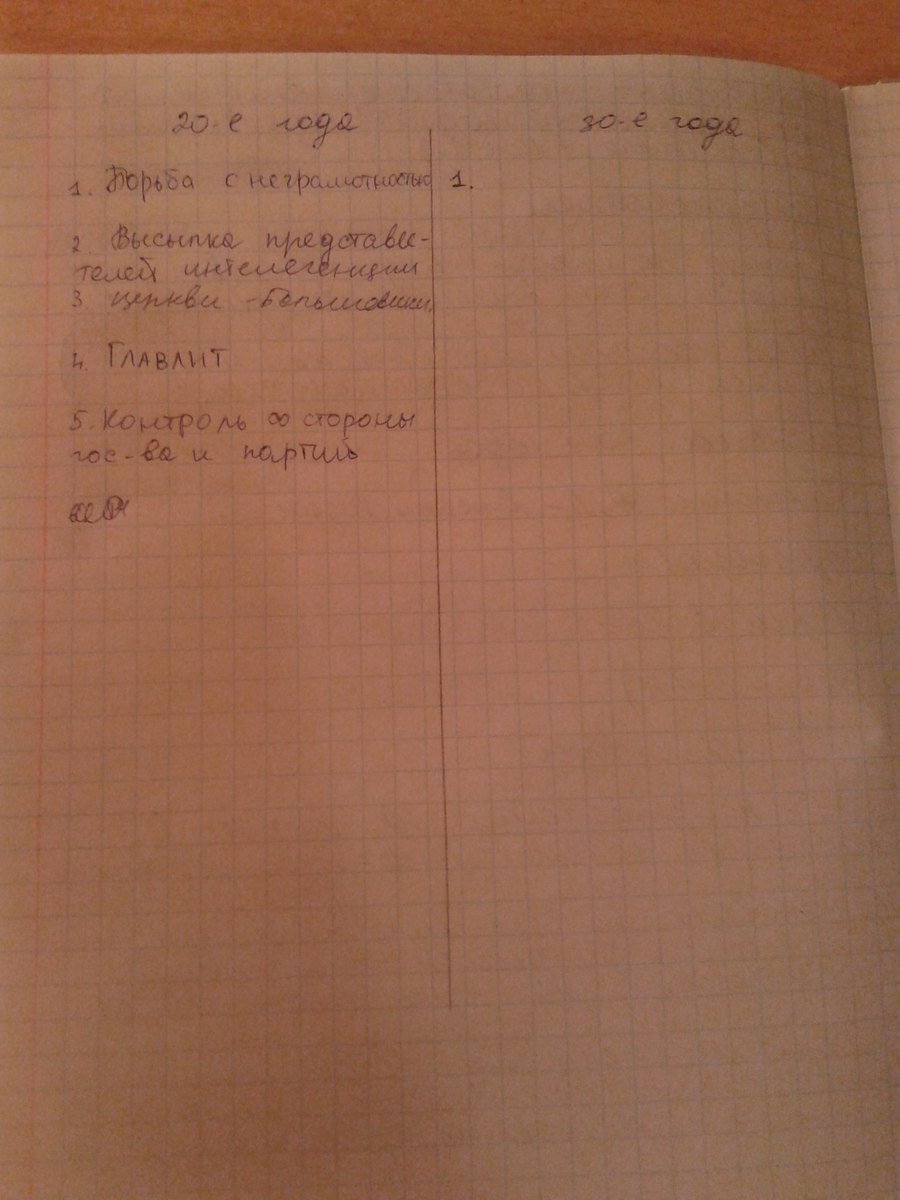 20-е года
30-е года
1. Борьба с неграмотностью
1.
2. Высылка представи-
телей интелегенции
3 Церкви - Большовики
4. ГЛАВЛИТ
5. Контроль со стороны
гос-ва и партий